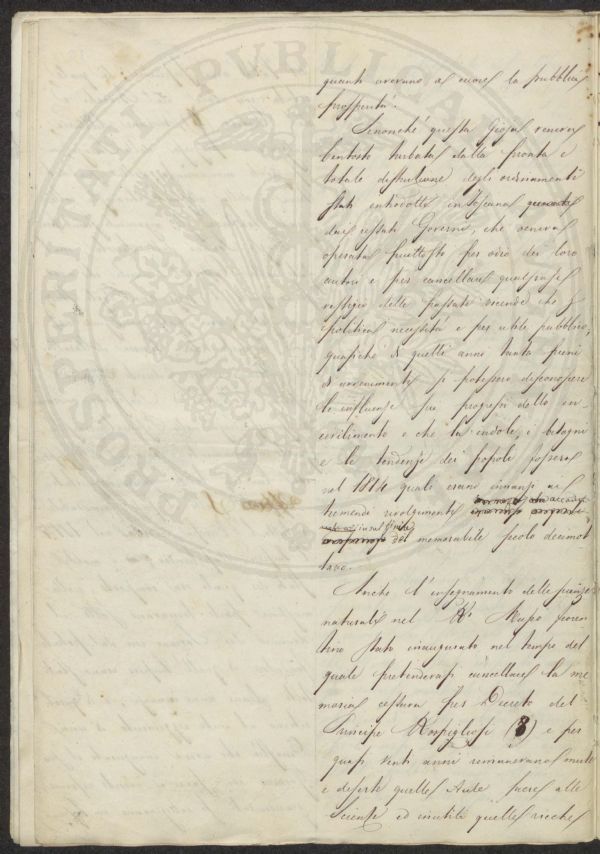 quanti avevano a cuore la pubblica
prosperità.
Senonché questa gioja veniva
bentosto turbata dalla pronta e
totale distruzione degli ordinamenti
stati introdotti in Toscana
dai cessati Governi, che veniva
operata piuttosto per odio dei loro
autori e per cancellare qualsiasi
vestigio delle passate vicende che
politica necessità e per utile pubblico,
quasiché di quelli anni tanto pieni
di avvenimenti si potessero disconoscere
le influenze sui progressi dello in-
civilimento e che la indole, i bisogni
e le tendenze dei popoli fossero
nel 1814 quali erano innanzi ai
tremendi rivolgimenti
del memorabile secolo decimot
tavo.
Anche l'insegnamento delle scienze
naturali nel R° Museo fioren
tino stato inaugurato nel tempo del
quale pretendevasi cancellare la me
moria cessava per Decreto del
Principe Rospigliosi (8) e per
quasi venti anni rimanevano mute
e deserte quelle Aule sacre alle
Scienze ed inutili quelle ricche
PROSPERITATI PVBLICAE